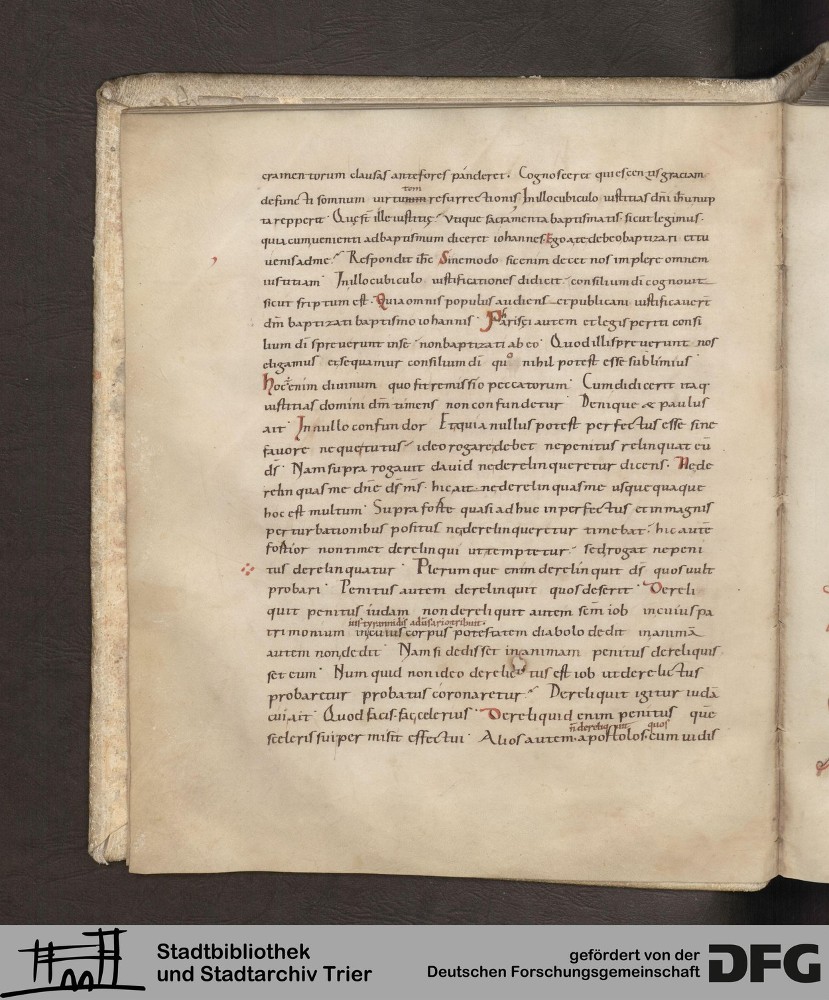 cramentorum clausas ante fores panderet. Cognosceret quiescentis gratiam
tem
defuncti somnum virtutem resurrectionis In illo cubiculo iustitias dni
ta repperit. Quę st ille iustitię; Utique sacramenta baptismatis. sicut legimus.
quia cum venienti ad baptismum diceret iohannes. Ego a te debeo baptizari et tu
venis ad me; Respondit ihc Sine modo sic enim decet nos implere omnem
iustitiam. In illo cubiculo iustificationes didicit. consilium di cognovit
sicut scriptum est. Quia omnis populus audiens et publicani iustificaverunt
dm baptizati baptismo iohannis. Pharisęi autem et legis periti consi
lium di spreverunt in se non baptizati ab eo. Quod illi spreverunt nos
eligamus et sequamur consilium di quo nihil potest esse sublimius.
Hoc est enim divinum quo fit remissio peccatorum. Cum didicerit itaq
iustitias domini dm timens non confundetur. Denique & paulus
ait. In nullo confundor Et quia nullus potest perfectus esse sine
favore ideo rogare debet ne penitus relinquat eu
ds. Nam supra rogavit david ne derelinqueretur dicens. Ne de
relinquas me dne ds ms. hic ait ne derelinquas me usquequaque
hoc est multum. Supra forte quasi adhuc inperfectus et in magnis
perturbationibus positus ne derelinqueretur timebat. hic aute
fortior non timet derelinqui ut temptetur. sed rogat ne peni
tus derelinquatur. Plerumque enim derelinquit ds quos vult
probari. Penitus autem derelinquit quos deserit. Dereli
quit penitus iudam non dereliquit autem scm iob in cuius pa
ius tyrannidis adversario tribuit.
trimonium in cuius corpus potestatem diabolo dedit in anima
autem non dedit. Nam si dedisset in animam penitus dereliquis
set eum. Numquid non ideo derelictus est iob ut derelictus
probaretur probatus coronaretur. Dereliquit igitur iuda
cui ait. Quod facis. fac celerius. Dereliquid enim penitus quę
n dereliquit quos
sceleris sui permisit effectui. Alios autem apostolos. cum vidis
Stadtbibliothek
und Stadtarchiv Trier
gefördert von der
Deutschen Forschungsgemeinschaft
DFG